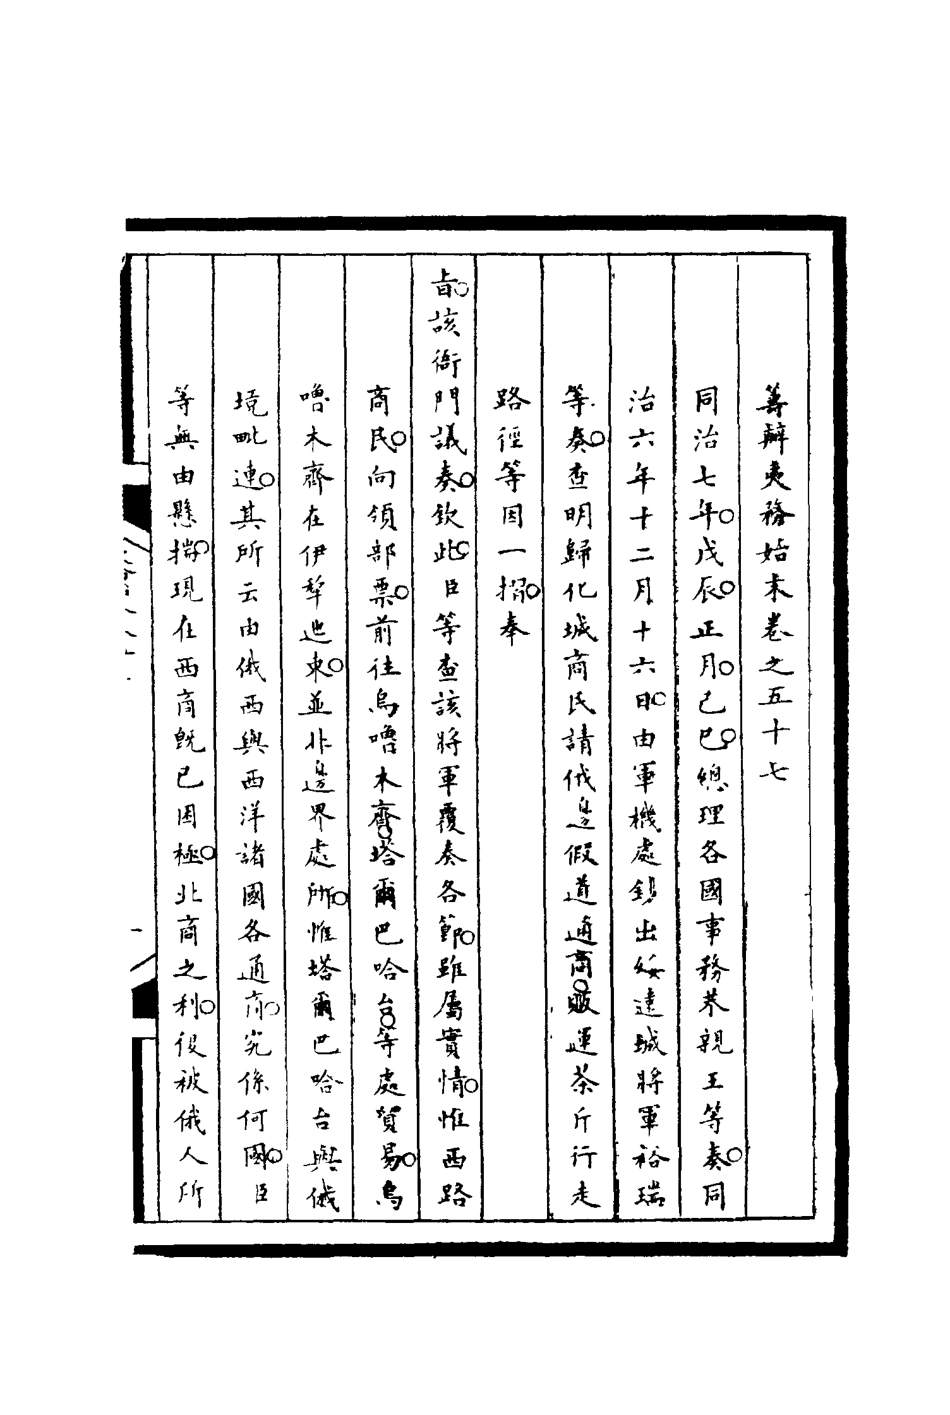 籌辦夷務始末卷之五十七
同治七年○戊辰○正月○己巳○總理各國事務恭親王等奏○同
治六年十二月十六日○由軍機處鈔出綏遠城將軍裕瑞
等奏○查明歸化城商民請俄邊假道通商○販運茶斤行走
路徑等因一摺○奉
旨○該衙門議奏○欽此○臣等查該將軍覆奏各節○雖屬實情○惟西路
商民○向領部票○前往烏嚕木齊○塔爾巴哈台○等處貿易○烏
嚕木齊在伊犂迆東○並非邊界處所○惟塔爾巴哈台與俄
境毗連○其所云由俄西與西洋諸國各通商○究係何國○臣
等無由懸揣○現在西商旣已困極○北商之利○役被俄人所